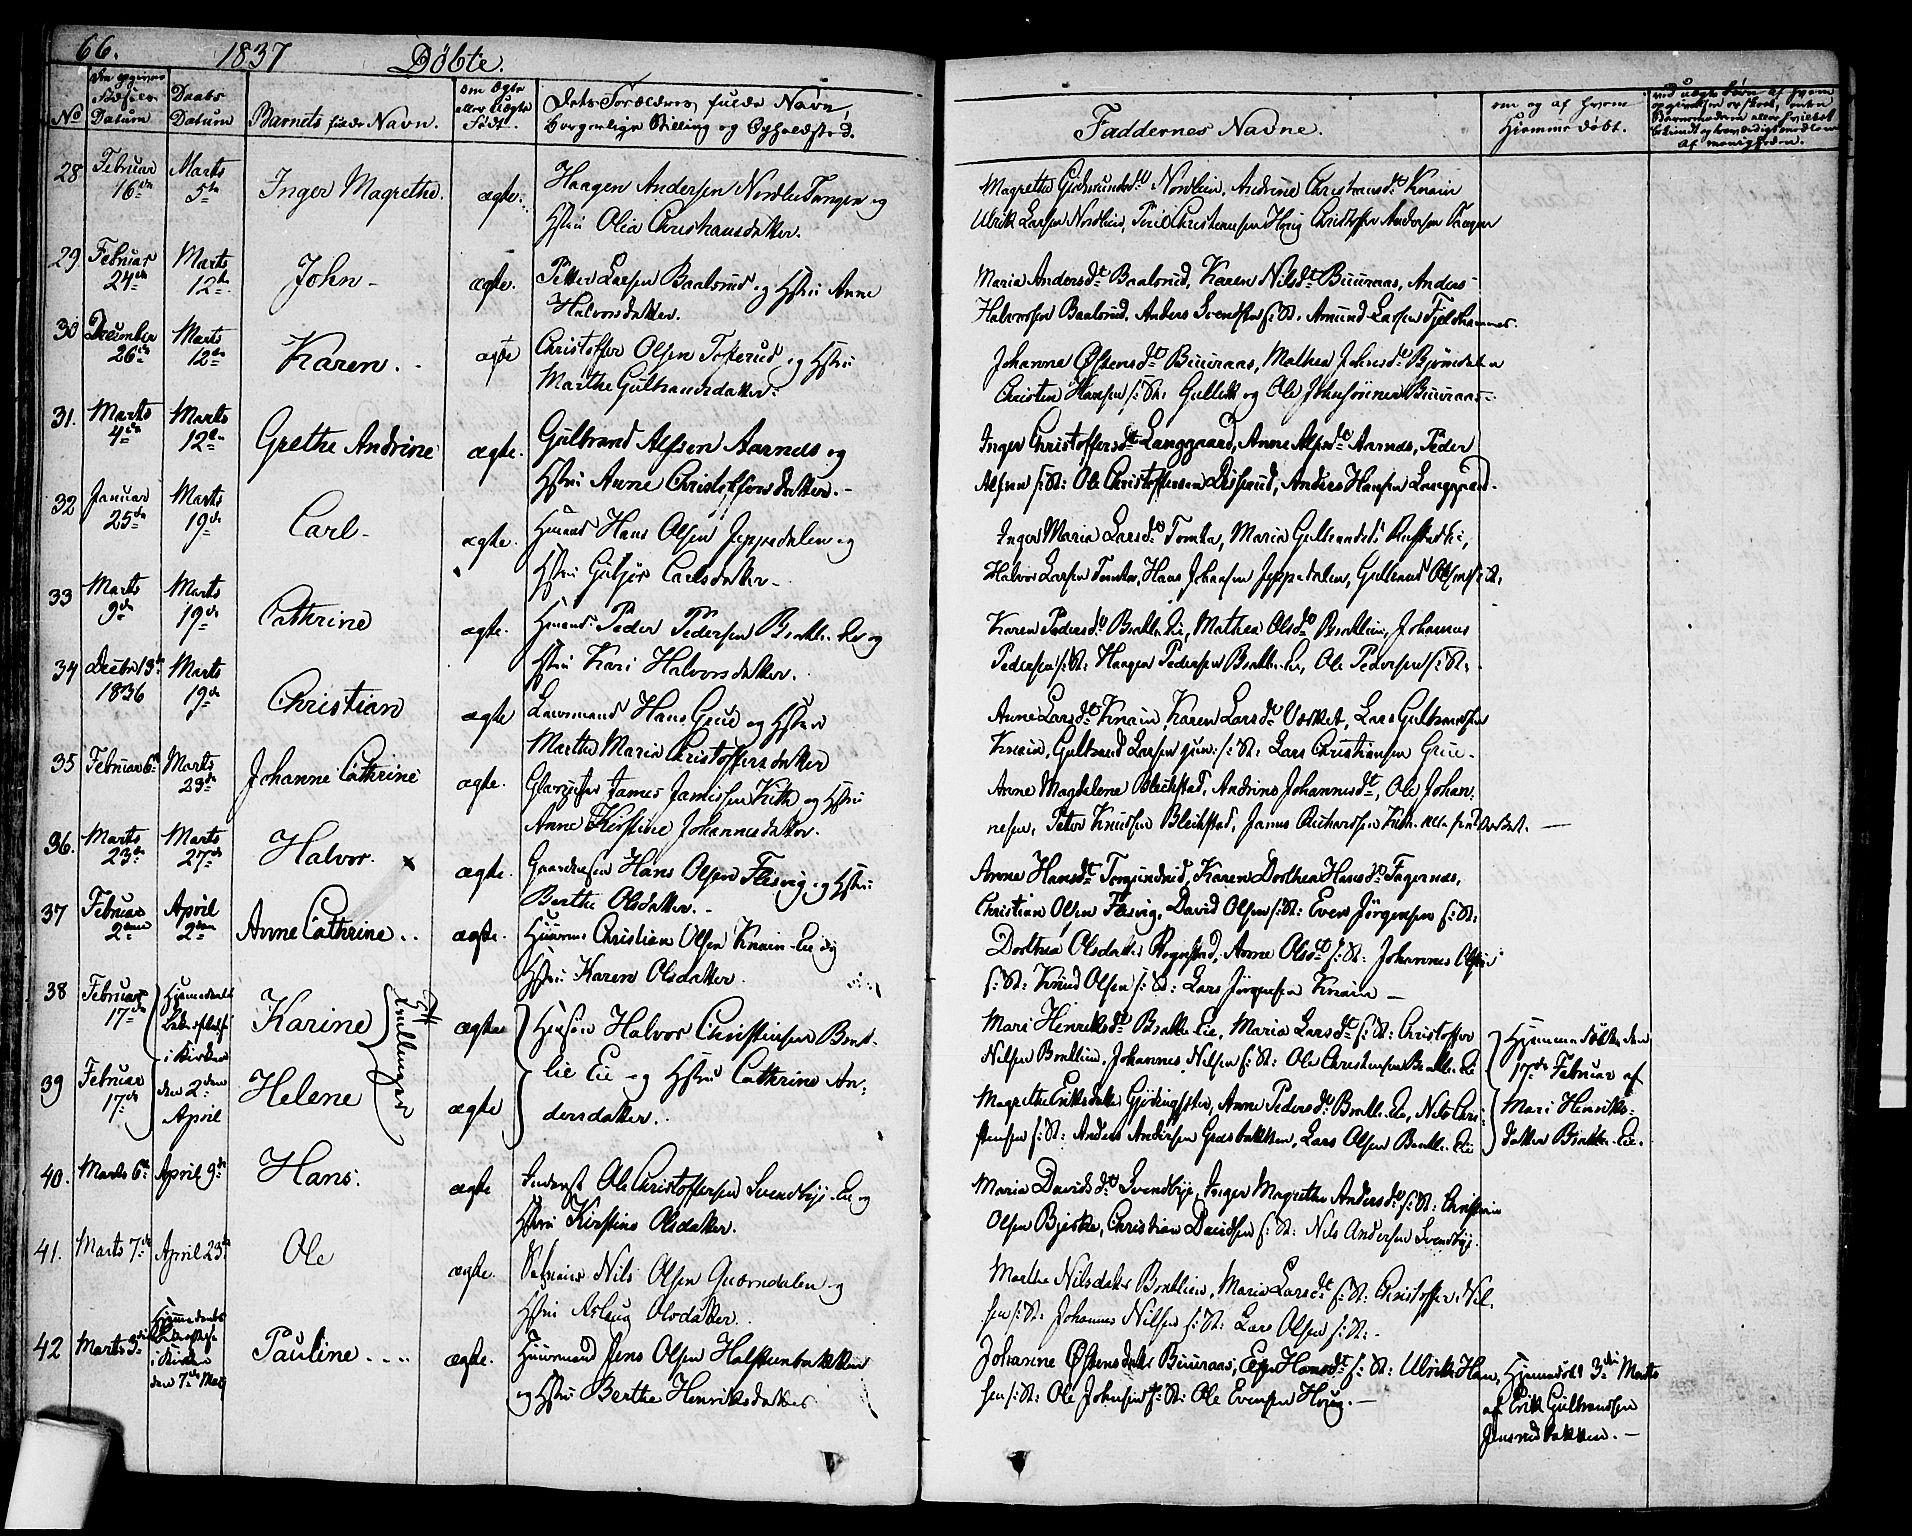 66. 1837 Döbte.
No
Födsels Datum
Daabs Datum
Barnets fulde Navn.
om Ægte eller Uægte Födt.
Forældrenes fulde Navn,
Borgerlige Stilling og Opholdsted.
Faddernes Navne.
om og af hvem
Hjemmedöbt.
28 Februar 16de Marts 5te Inger Magrethe. ægte.
Haagen Andersen Nordlie Tangen og
Hstru Olia Christiansdatter.
Magrethe Nordlien, Andrine Christiansdt Knain
Ulrik Larsen Nordlien, Christiansen Houg Christoffer Andersen Tangen
29 Februar 24de Marts 12te John - ægte.
Petter Larsen Baalsrud og Hstru Anne
Halvorsdatter.
Maria Andersdt Baalsrud, Karen Nilsdt Buuraas, Anders
Halvorsen Baalsrud, Anders Svendsen s: St. Amund Larsen
30 December 26de Marts 12te Karen. ægte
Christoffer Olsen Tofterud og Hstru
Marthe Gulbrandsdatter.
Johanne Østensdt Buuraas, Mathea Johnsdt Bjöndalen
Christen Hansen s: St: Gullik og Ole Johnsönner Buuraas
31. Marts 4de Marts 12te Grethe Andrine ægte.
Gulbrand Alfsen Aarnes og
Hstru Anne Christoffersdatter. -
Inger Christoffersdt Langgaard, Anne Alfsdt Aarnes, Peder
Alfsen s: St: Ole Christoffersen Anders Hansen Langgaard.
32 Januar 25de Marts 19de Carl - ægte.
Huusmd Hans Olsen Jeppedalen og
Hstru Carlsdatter -
Inger Maria Larsdt Tomta, Maria Gulbrandsdt
Halvor Larsen Tomta, Hans Johansen Jeppedalen, Gulbrand Olsen s: St.
33 Marts 9de Marts 19de Cathrine ægte.
Huusmd. Peder Pedersen Bratlie Eie og
Hstru Kari Halvorsdatter.
Karen Pedersdt Bratlie Eie, Mathea Olsdt Bratlien, Johannes
Pedersen s: St: Haagen Pedersen Bratlie Eie, Ole Pedersen s: St:
34 Decbr 13de 1836 Marts 19de Christian ægte
Hans Grue og Hstru
Marthe Maria Christoffersdatter
Anne Larsdt Knain, Karen Larsdt Værket, Lars Gulbrandsen
Knain, Gulbrand Larsen s: St: Lars Christiansen Grue -
35 Februar 6te Marts 23de Johanne Cathrine ægte.
James Jamessen Keith og Hstru
Anne Kirstine Johannesdatter.
Anne Magdelene Blechstad, Andrine Johannesdt, Ole Johan-
nesen, Peter Knudsen Blechstad, James Richardsen Keith
36. Marts 23de Marts 27de Halvor. x ægte.
Hans Olsen Fleisvig og Hstru
Berthe Olsdatter. -
Anne Hansdt Karen Dorthea Hansdt Fagernæs,
Christian Olsen Fleisvig, David Olsen s: St: Even Jörgensen s: St:
37 Februar 2den April 2den Anne Cathrine. ægte.
Christian Olsen Knain Eie og
Hstru Karen Olsdatter.
Dorthea Olsdatter Rognstad, Anne Olsdt s: St: Johannes Olsen
s: St: Knud Olsen s: St: Lars Jörgensen Knain -
38 Februar 17de Karine ægte
39 Februar 17de Helene ægte
Hjemmedöbt
i Kirken
den 2den
April
Tvillinger
Halvor Christensen Brat-
lie Eie - og Hstru Cathrine An-
dersdatter.
Mari Henriksdt Bratlie Eie, Maria Larsdt s: St: Christoffer
Nilsen Bratlien, Johannes Nilsen s: St: Ole Christensen Bratlie Eie
Magrethe Eriksdatter Anne Pedersdt Bratlie Eie, Nils Chri-
stensen s: St: Anders Andersen Græsbakken, Lars Olsen Bratlie Eie
Hjemmedöbte den
17de Februar af
Mari Henriks-
datter Bratlie Eie.
40. Marts 6te April 9de Hans. ægte
Ole Christoffersen Svendbye Eie og
Hstru Kirstine Olsdatter.
Maria Davidsdt Svendbye, Inger Magrethe Andersdt s: St: Christian
Olsen Bjerke, Christian Davidsen s: St: Nils Andersen Svendbye.
41. Marts 7de April 23de Ole ægte.
Nils Olsen Quærndalen og
Hstru Aslaug Olsdatter.
Marthe Nilsdatter Bratlien, Maria Larsdt s: St: Christoffer Nil-
sen s: St: Johannes Nilsen s: St: Lars Olsen s: St: -
42 Marts 3die
Hjemmedöbt
i Kirken
den 7de Mai
Pauline ægte.
Huusmand Jens Olsen Halsteenbakken
og Hstru Berthe Henriksdatter
Johanne Østensdatter Buuraas, Hansdt s: St: Ulrik Han-
sen s: St: Ole Johnsen s: St: Ole Evensen Houg. -
Hjemmedöbt 3die Marts
af Erik Gulbrandsen
Jensrudbakken. -